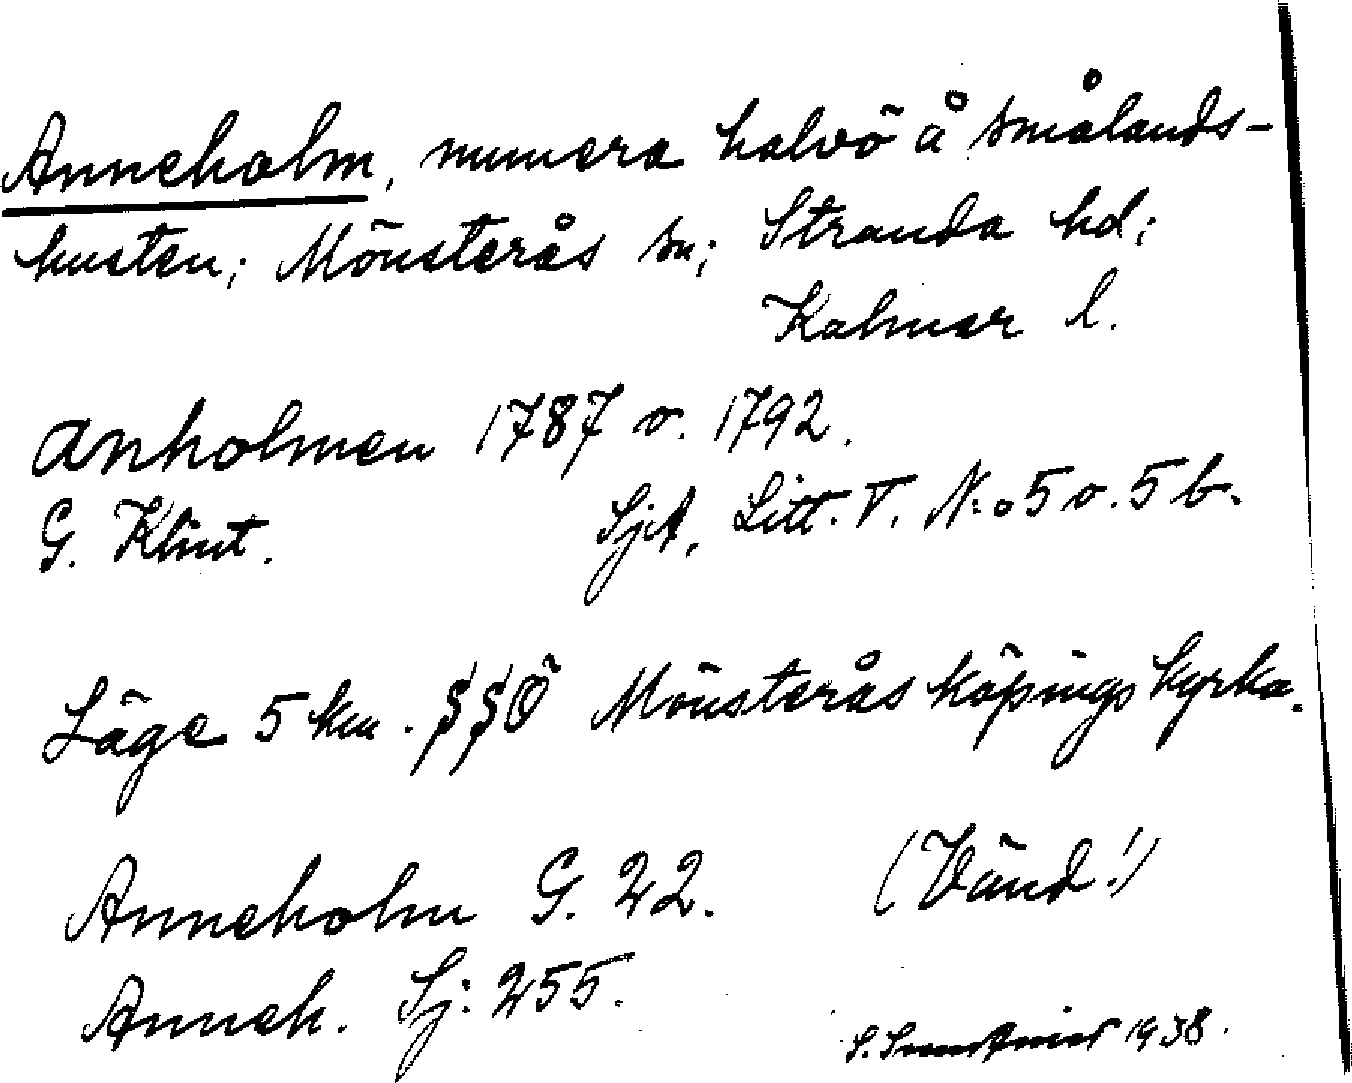 Anneholm, numera halvö å smålands-
kusten; Mönsterås sn; Stranda hd;
Kalmar l.
Anholmen 1787 o. 1792.
G. Klint. SjA, Litt. T. N:o 5 o. 5 b.
Läge 5 km. SSÖ Mönsterås köpings kyrka.
Anneholm G. 22. (Vänd!)
Anneh. Sj: 255.
S. 1938.